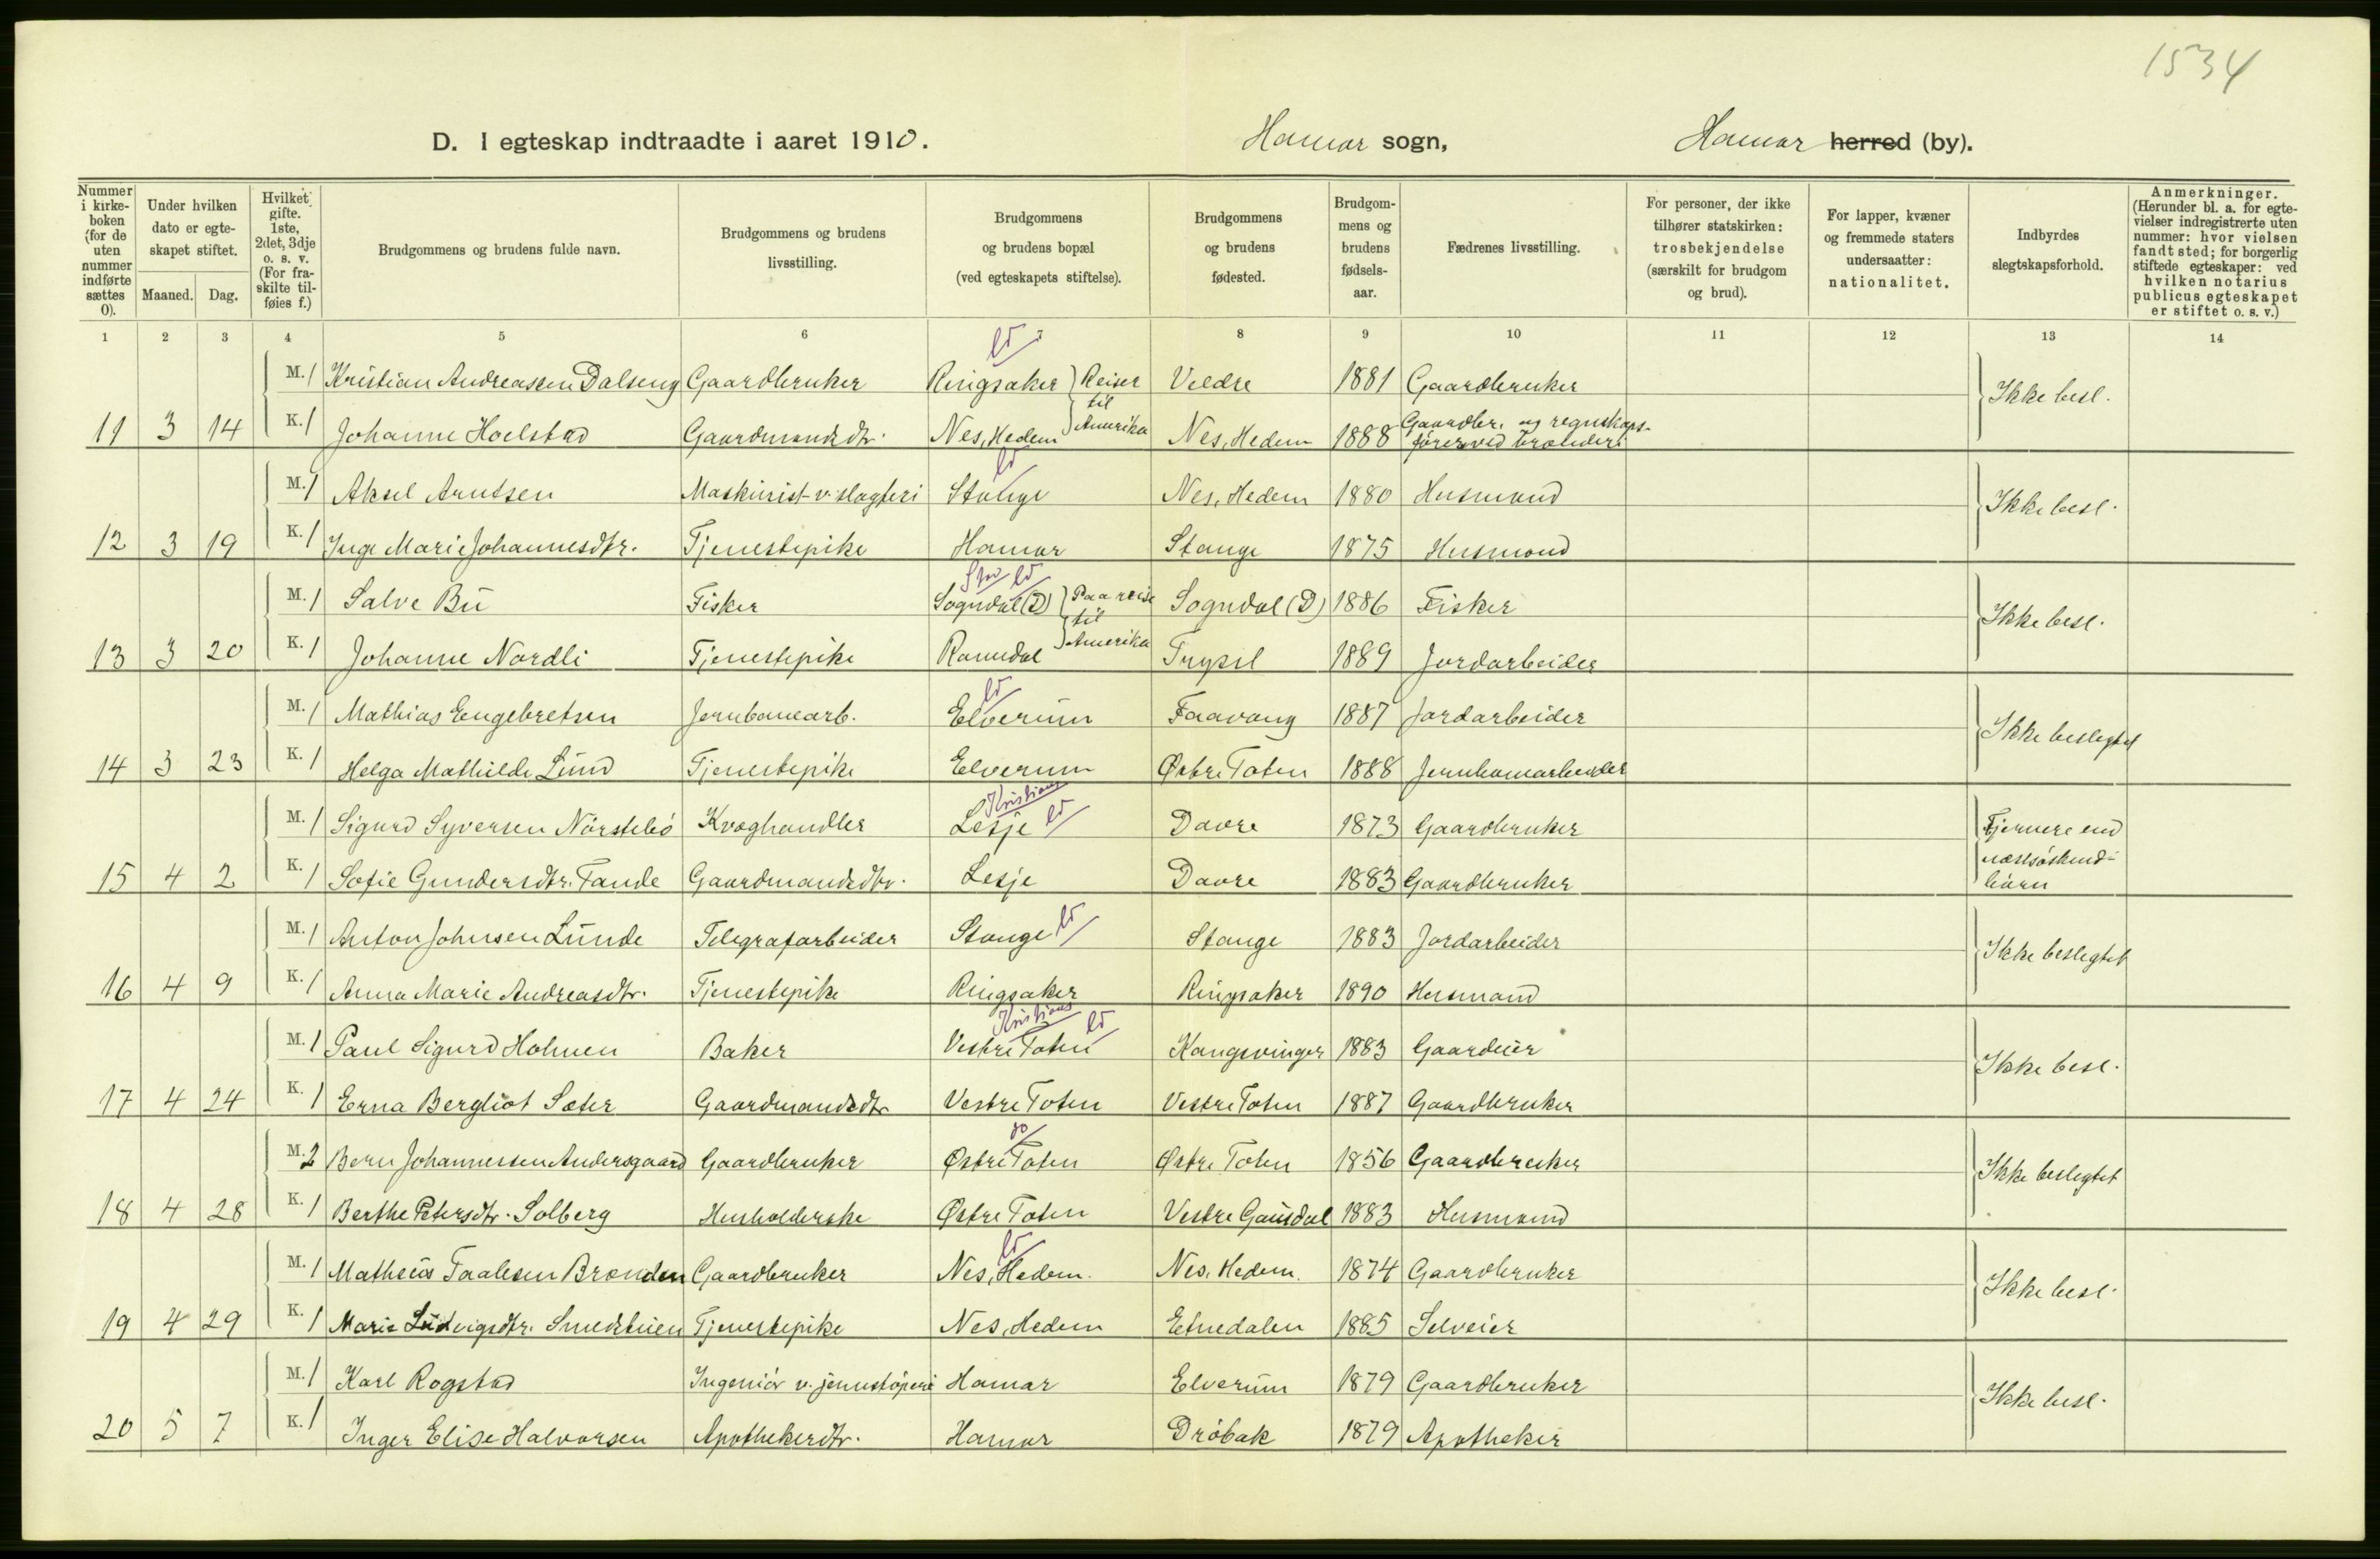 1534
D. I egteskap indtraadte i aaret 1910. Hamar sogn, Hamar herred (by).
Nummer i kirke-boken (for de uten nummer indførte sættes 0).
Under hvilken dato er egte-skapet stiftet.
Maaned. Dag.
Hvilket gifte. 1ste, 2det, 3dje o. s. v. (For fra-skilte til-føies f.)
Brudgommens og brudens fulde navn.
Brudgommens og brudens livsstilling.
Brudgommens og brudens bopæl (ved egteskapets stiftelse).
Brudgommens og brudens fødested.
Brudgom-mens og brudens fødsels-aar.
Fædrenes livsstilling.
For personer, der ikke tilhører statskirken: trosbekjendelse (særskilt for brudgom og brud).
For lapper, kvæner og fremmede staters undersaatter: nationalitet.
Indbyrdes slegtskapsforhold.
Anmerkninger. (Herunder bl. a. for egte-vielser indregistrerte uten nummer: hvor vielsen fandt sted; for borgerlig stiftede egteskaper: ved hvilken notarius publicus egteskapet er stiftet o. s. v.)
1 2 3 4 5 6 7 8 9 10 11 12 13 14
M. 1 Kristian Andreassen Dalseng Gaardbruker Ringsaker } Reiser Veldre 1881 Gaardbruker
til Ikke besl.
11 3 14 K. 1 Johanne Hoelstad Gaardmandsdtr. Nes, Hedem Amerika Nes, Hedem 1888 Gaardbr. og regnskaps-fører ved brænderi
M. 1 Aksel Arntsen Maskinist v. slagteri Stange Nes, Hedem 1880 Husmand
Ikke besl.
12 3 19 K. 1 Inge Marie Johannesdtr. Tjenestepike Hamar Stange 1875 Husmand
M. 1 Salve Bu Fisker Sogndal (D) } Paa reise Sogndal (D) 1886 Fisker
til Ikke besl.
13 3 20 K. 1 Johanne Nordli Tjenestepike Romedal Amerika Trysil 1889 Jordarbeider
M. 1 Mathias Engebretsen Jernbanearb. Elverum Faavang 1887 Jordarbeider
Ikke beslegtet
14 3 23 K. 1 Helga Mathilde Lund Tjenestepike Elverum Østre Toten 1888 Jernbanearbeider
Kristians
M. 1 Sigurd Syversen Nørstebø Kvæghandler Lesje Dovre 1873 Gaardbruker Fjernere end
næstsøskend-
15 4 2 K. 1 Sofie Gundersdtr. Tande Gaardmandsdtr. Lesje Dovre 1883 Gaardbruker børn
M. 1 Anton Johnsen Lunde Telegrafarbeider Stange Stange 1883 Jordarbeider
Ikke beslegtet
16 4 9 K. 1 Anna Marie Andreasdtr. Tjenestepike Ringsaker Ringsaker 1890 Husmand
Kristians
M. 1 Paul Sigurd Holmen Baker Vestre Toten Kongsvinger 1883 Gaardeier
Ikke besl.
17 4 24 K. 1 Erna Bergliot Sæter Gaardmandsdtr Vestre Toten Vestre Toten 1887 Gaardbruker
M. 2 Bern Johannessen Andersgaard Gaardbruker Østre Toten Østre Toten 1856 Gaardbruker
Ikke beslegtet
18 4 28 K. 1 Berthe Petersdtr. Solberg Husholderske Østre Toten Vestre Gausdal 1883 Husmand
M. 1 Matheus Taalesen Brenden Gaardbruker Nes, Hedem. Nes, Hedem. 1874 Gaardbruker
Ikke besl.
19 4 29 K. 1 Marie Ludvigsdtr. Smedstuen Tjenestepike Nes, Hedem Etnedalen 1885 Selveier
M. 1 Karl Rogstad Ingeniør v. jernstøperi Hamar Elverum 1879 Gaardbruker
Ikke besl.
20 5 7 K. 1 Inger Elise Halvorsen Apothekerdtr. Hamar Drøbak 1879 Apotheker